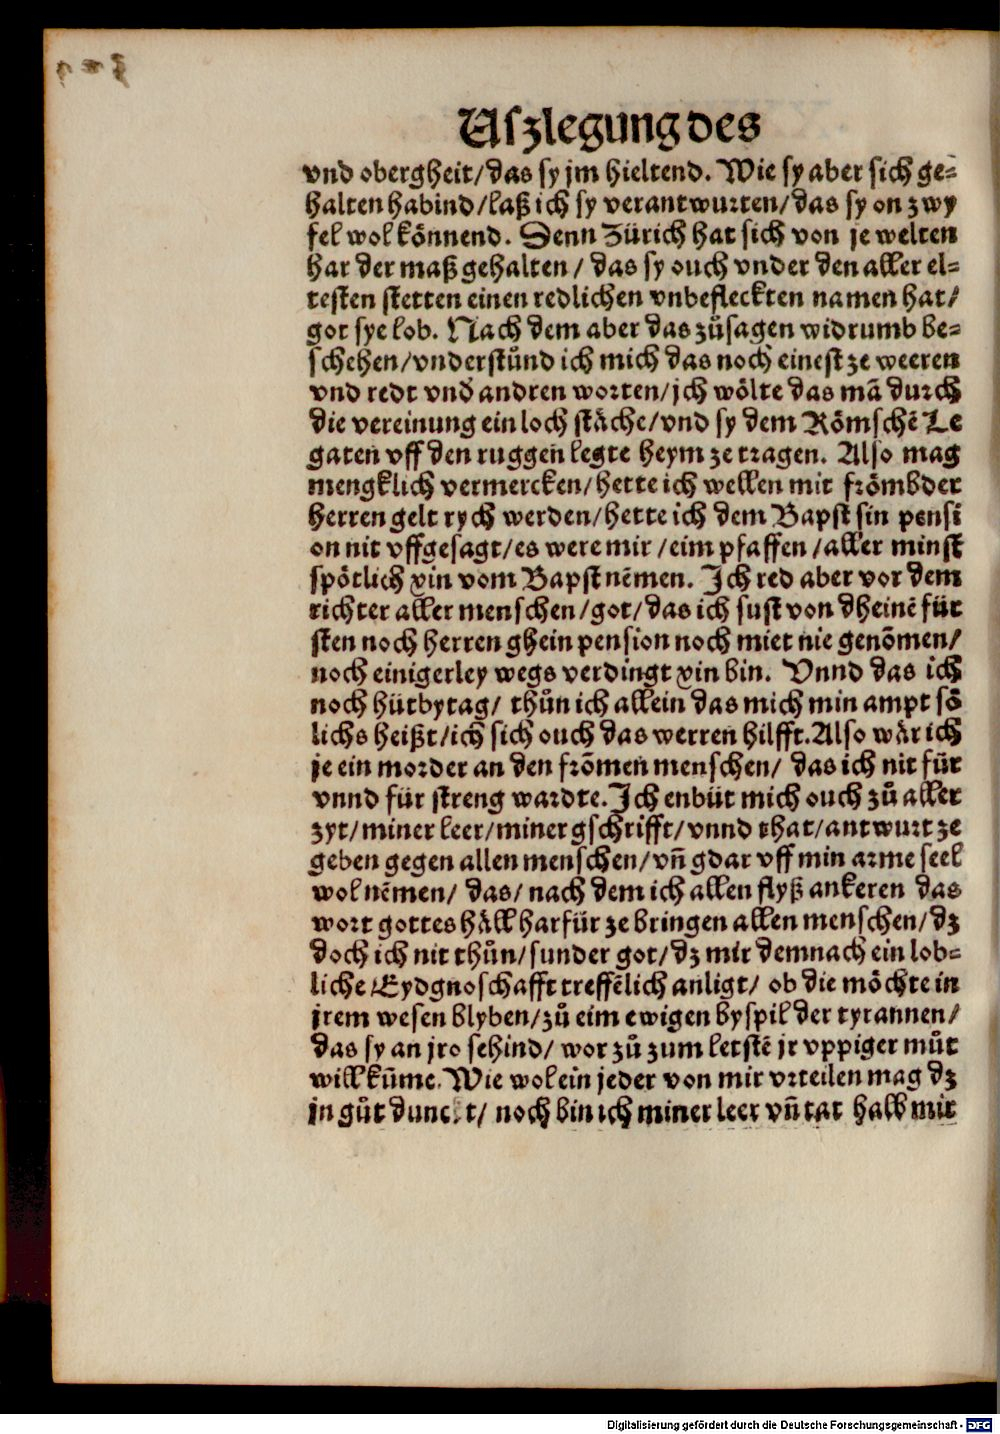 Uszlegung des
vnd obergheit/das sy jm hieltend. Wie sy aber sich ge⸗
halten habind/laß ich sy verantwurten/das sy on zwy
fel wol könnend. Denn Zürich hat sich von je welten
har der maß gehalten/ das sy ouch vnder den aller el⸗
testen stetten einen redlichen vnbefleckten namen hat/
got sye lob. Nach dem aber das zůsagen widrumb be⸗
schehen/vnderstůnd ich mich das noch einest ze weeren
vnd redt vnd̕ andren worten/jch wölte das mā durch
die vereinung ein loch stäche/vnd sy dem Römschē Le
gaten vff den ruggen legte heym ze tragen. Also mag
mengklich vermercken/hette ich wellen mit frömbder
herren gelt rych werden/hette ich dem Bapst sin pensi
on nit vffgesagt/es were mir/eim pfaffen/aller minst
spötlich xin vom Bapst nēmen. Ich red aber vor dem
richter aller menschen/got/das ich sust von dheinē für
sten noch herren ghein pension noch miet nie genōmen/
noch einigerley wegs verdingt xin bin. Vnnd das ich
noch hütbytag/ thůn ich allein das mich min ampt sö
lichs heißt/ich sich ouch das werren hilfft. Also wär ich
je ein morder an den frōmen menschen/ das ich nit für
vnnd für streng wardte. Ich enbüt mich ouch zů aller
zyt/miner leer/miner gschrifft/vnnd that/antwurt ze
geben gegen allen menschen/vn̄ gdar vff min arme seel
wol nēmen/ das/ nach dem ich allen flyß ankeren das
wort gottes häll harfür ze bringen allen menschen/dz
doch ich nit thůn/sunder got/dz mir demnach ein lob⸗
liche Eydgnoschafft treffēlich anligt/ ob die möchte in
jrem wesen blyben/zů eim ewigen byspil der tyrannen/
das sy an jro sehind/ wor zů zum letstē jr vppiger můt
will kūme. Wie wol ein jeder von mir vrteilen mag dz
jn gůt dunckt/ noch bin ich miner leer vn̄ tat halb mit
Digitalisierung gefördert durch die Deutsche Forschungsgemeinschaft - DFG